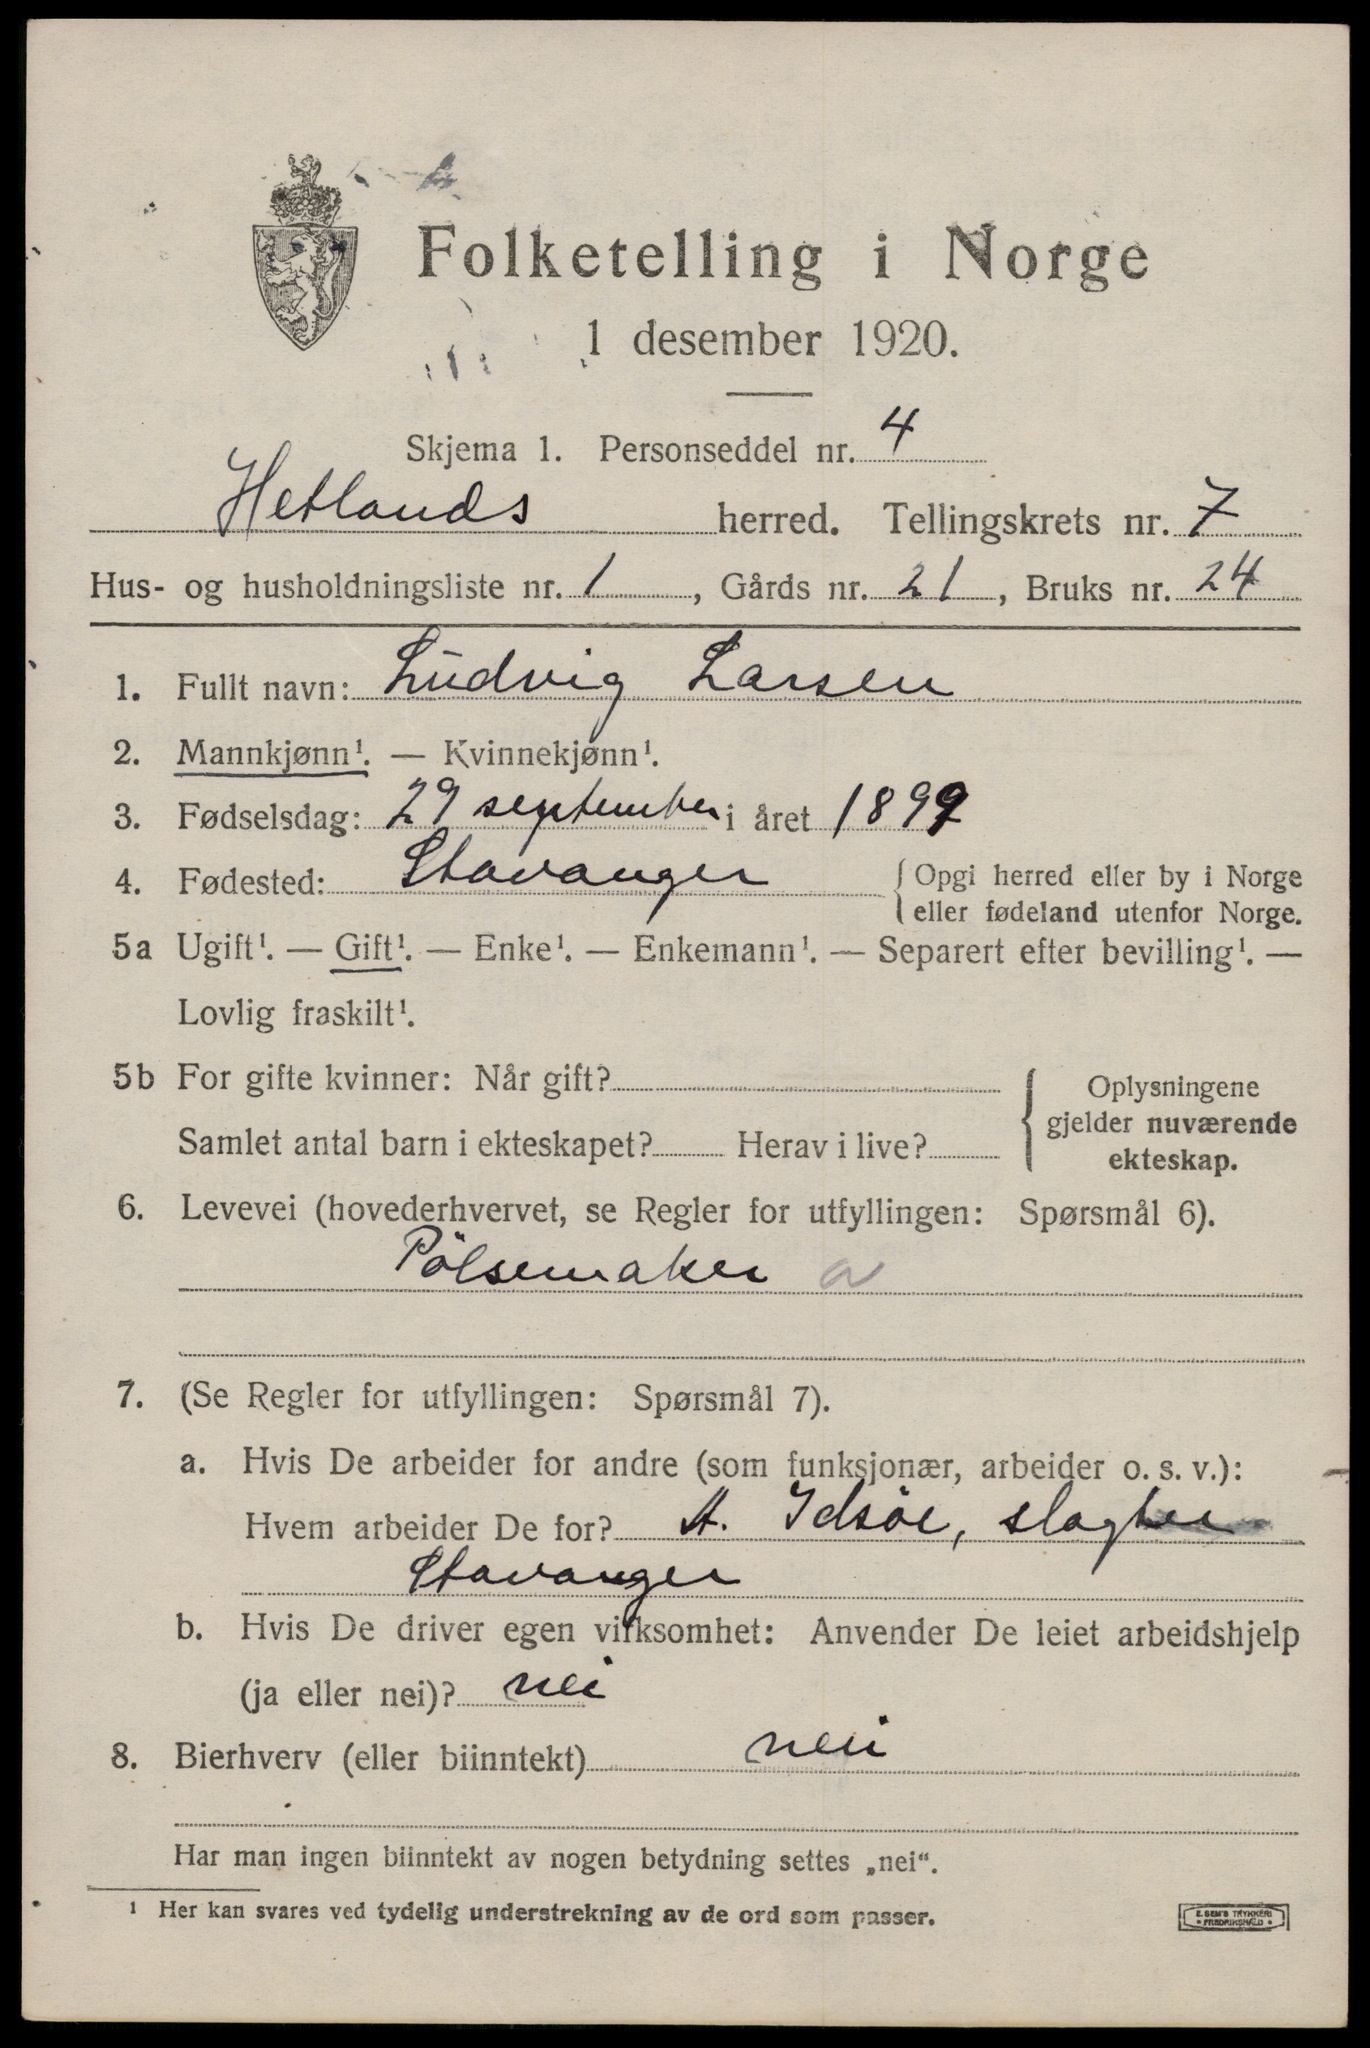 Folketelling i Norge
1 desember 1920.
Skjema 1. Personseddel nr. 4
Hetlands herred. Tellingskrets nr. 7
Hus- og husholdningsliste nr. 1, Gårds nr. 21, Bruks nr. 24
1. Fullt navn: Ludvig Larsen
2. Mannkjønn¹. — Kvinnekjønn¹.
3. Fødselsdag: 29 september i året 1899
4. Fødested: Stavanger { Opgi herred eller by i Norge
eller fødeland utenfor Norge.
5a Ugift¹. — Gift¹. — Enke¹. — Enkemann¹. — Separert efter bevilling¹. —
Lovlig fraskilt¹.
5b For gifte kvinner: Når gift?
Samlet antal barn i ekteskapet? Herav i live?
{ Oplysningene
gjelder nuværende
ekteskap.
6. Levevei (hovederhvervet, se Regler for utfyllingen: Spørsmål 6).
Pölsemaker a
7. (Se Regler for utfyllingen: Spørsmål 7).
a. Hvis De arbeider for andre (som funksjonær, arbeider o. s. v.):
Hvem arbeider De for? A. Idsöe, slagter
Stavanger
b. Hvis De driver egen virksomhet: Anvender De leiet arbeidshjelp
(ja eller nei)? nei
8. Bierhverv (eller biinntekt) nei
Har man ingen biinntekt av nogen betydning settes „nei“.
¹ Her kan svares ved tydelig understrekning av de ord som passer.
E. SEM'S TRYKKERI
• FREDRIKSHALD •